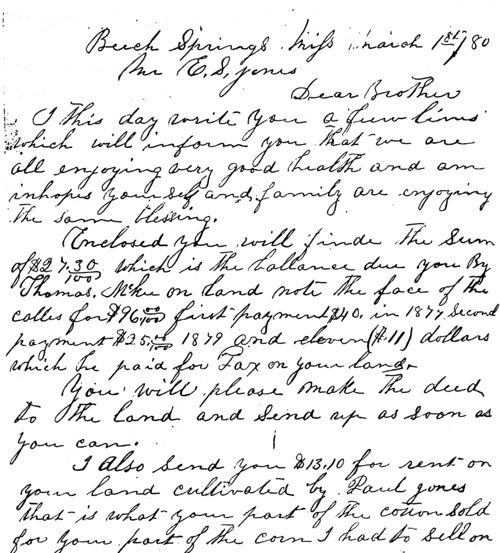 Beech Springs Miss March 1st/80
Mr E.S. Jones
Dear Brother
I this day write you a few lines
which will inform you that we are
all enjoying very good health and am
inhopes yourself and family are enjoying
the same blessing.
Enclosed you will finde the Sum
of $27.30/100 which is the ballance due you By
Thomas McKee on land note the face of the
calles for $96 00/100 first payment $40. in 1877 Second
payment $25 00/100 1879 and eleven ($11) dollars
which he paid for Tax on your land.
You will please make the deed
to the land and send up as soon as
you can.
I Also send you $13.10 for rent on
your land cultivated by Paul Jones
that is what your part of the cotton sold
for your part of the corn I had to sell on